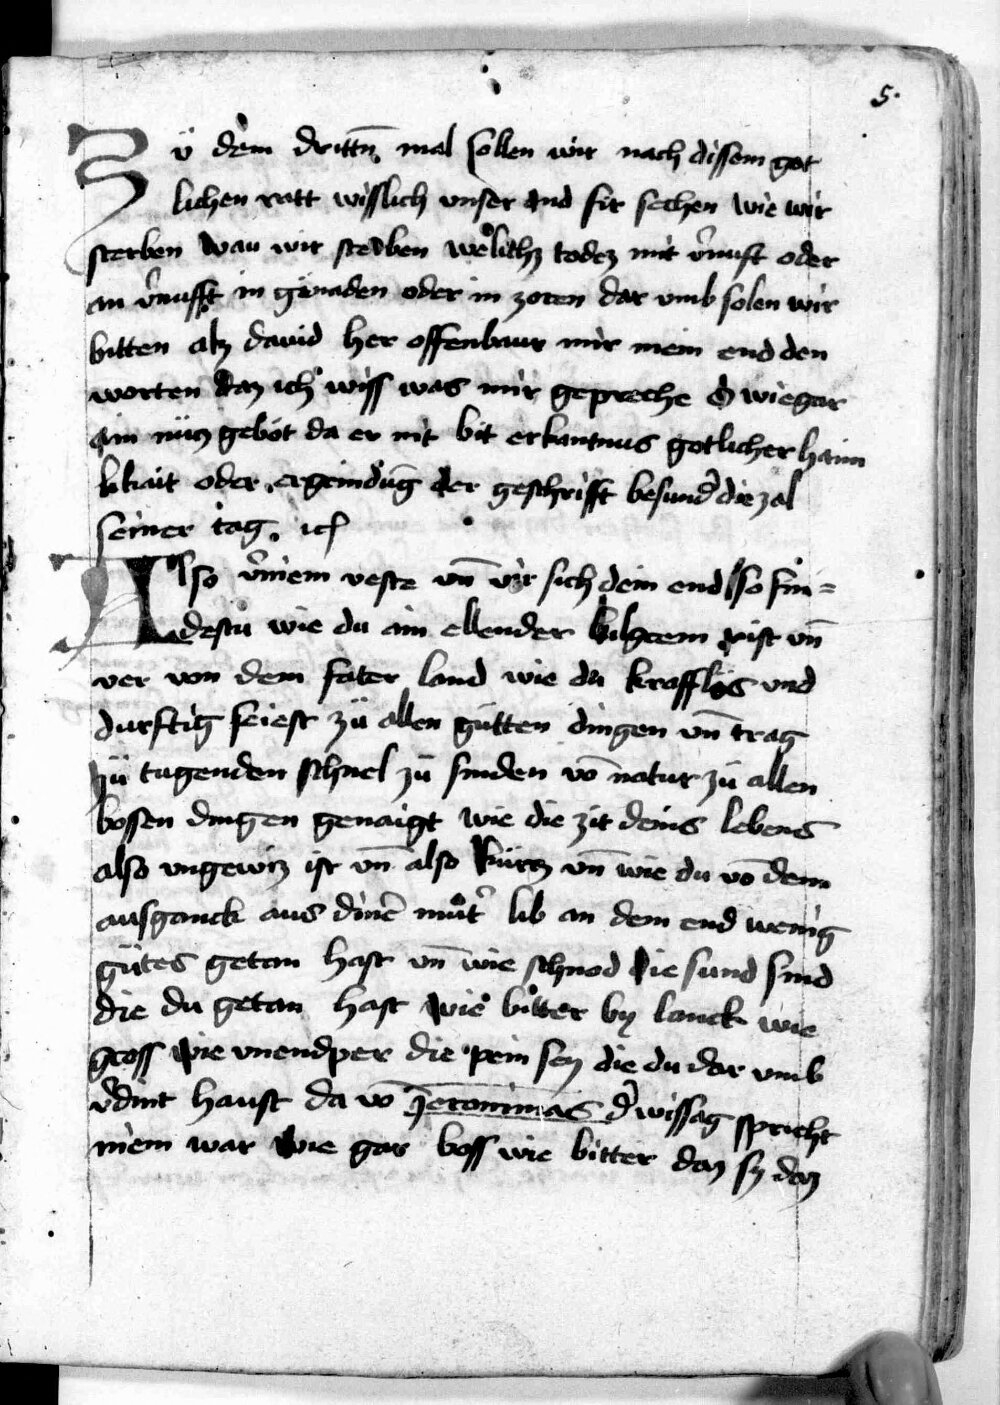 5.
Zü dem drittn̄ mal sollen wir nach dissem got
lichen ratt wisslich vnser end fir sechen wie wir
sterben wau wir sterben welichz todez mit v̾nuft oder
an v̾nufft in gnaden oder in zoren dar vmb solen wir
bitten alz dauid her offenbaur mir mein end den
worten daz ich wiss was mir gepreche O wie gar
ain nüz gebot da er nit bit erkantnus gotlicher haim
likait oder ergrindūg der geschrifft besund̾ die zal
seiner tag. ich
Also v̾niem veste vn̄ vir sich dein end so fin=
destu wie du ain ellender bilgrem pist vn̄
ver von dem fater land wie du krafflos vnd
durftig seiest zü allen gütten dingen vn̄ trag
zü tugenden schnel zü sinden vō natur zü allen
bossen dingen genaigt wie die zit deins lebens
also vngewiz ist vn̄ also kurtz vn̄ wie du vō dem
ausganck aus dinē mut̾ lib an dem end wenig
gütes getan hast vn̄ wie schnod die sund sind
die du getan hast wie bitter by lanck wie
gross wie vnendper die pein sey die du dar vmb
v̾dint haust da vō Jeronimas d̾ wissag spricht
niem war wie gar boss wie bitter daz sy daz